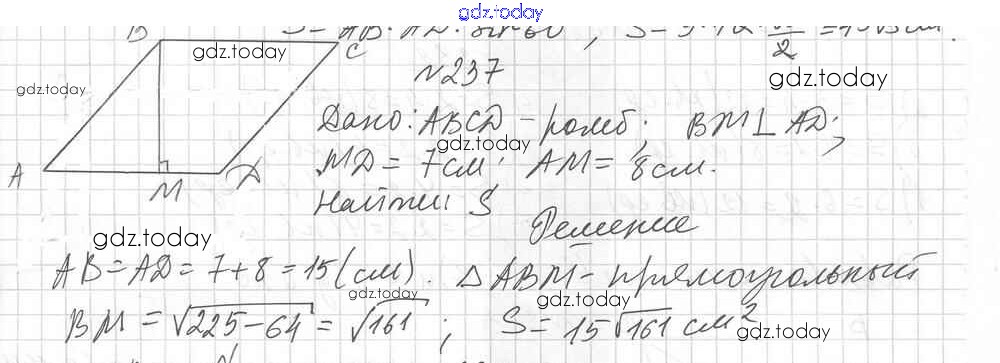 gdz.today
B C
gdz.today
gdz.today
gdz.today
№237
Дано: ABCD - ромб; BM⊥AD;
MD = 7см; AM = 8см.
Найти S
A M D
Решение
gdz.today
AB = AD = 7+8 = 15 (см). △ABM - прямоугольный
gdz.today gdz.today
BM = √225-64 = √161; S = 15√161 см²
gdz.today